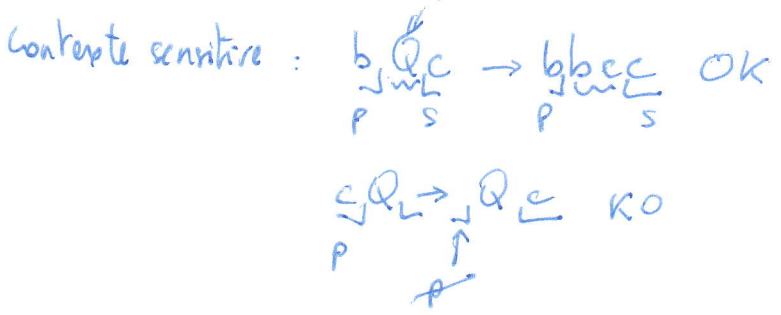 Contexte sensitive : b Q c → bbcc OK
p s p s
cQ → Q c KO
p
p